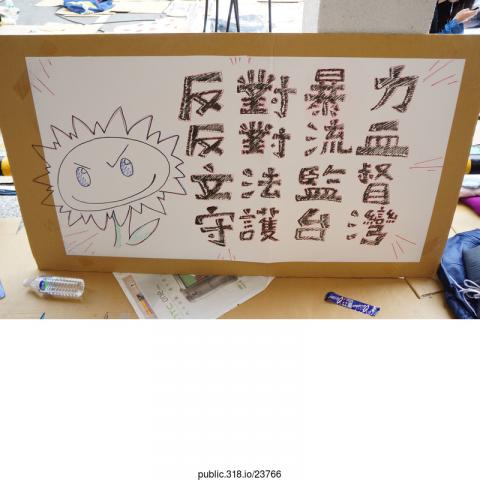 反對暴力
反對流血
立法監督
守護台灣
public.318.io/23766